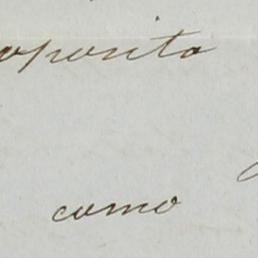 oposito
como